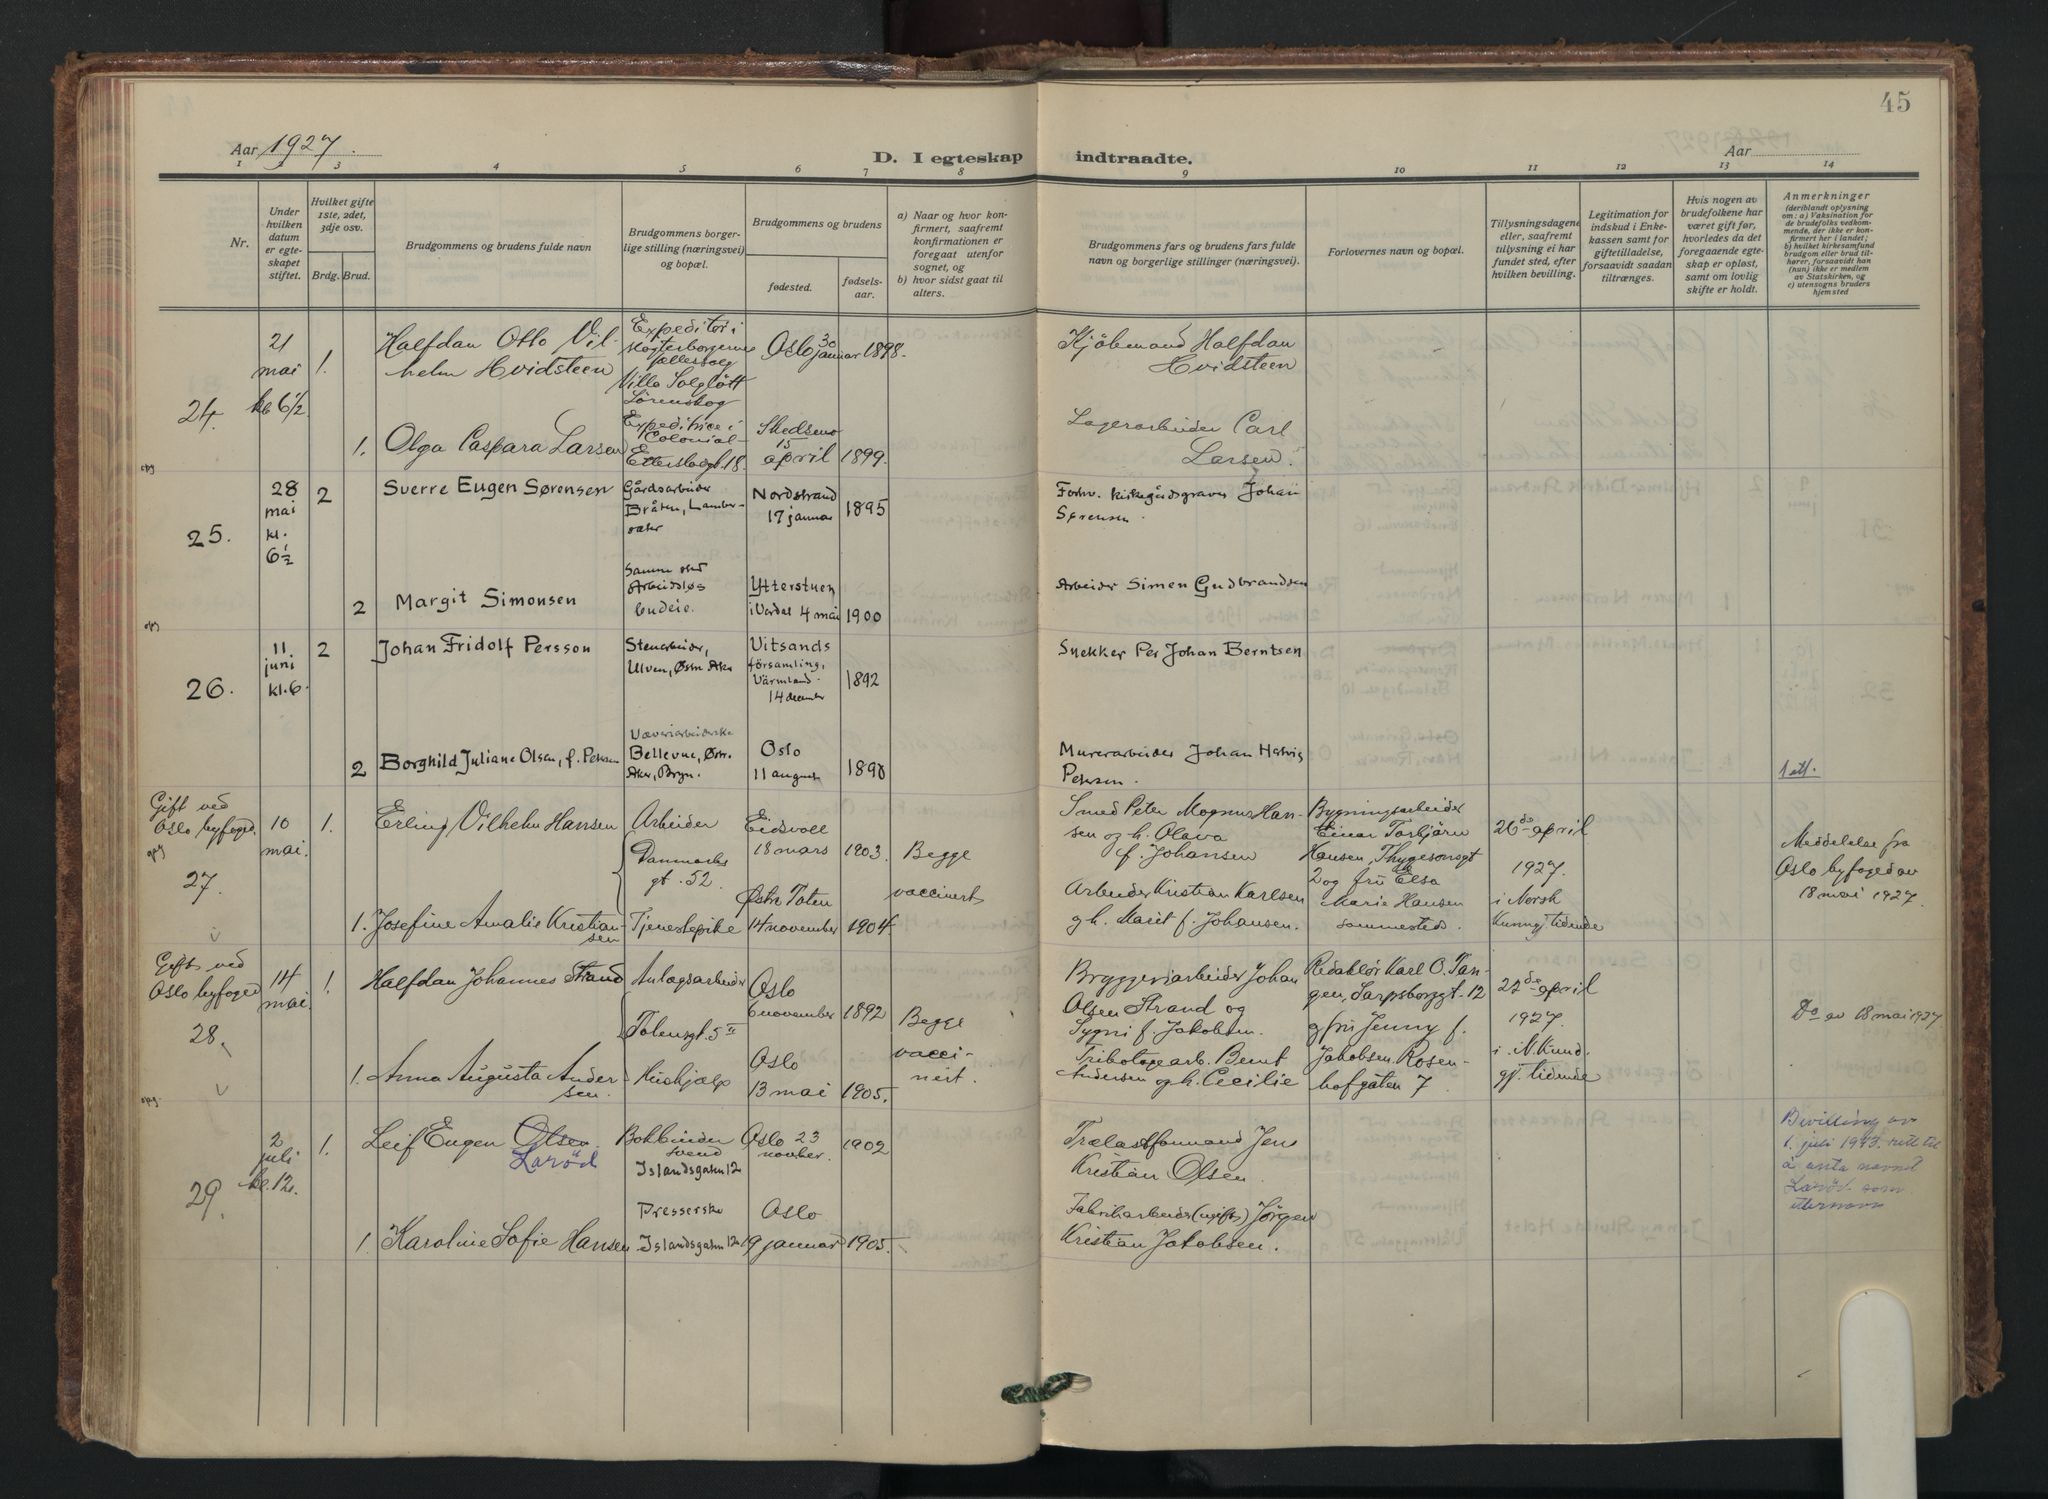 45
Aar 1927.
D. I egteskap indtraadte.
Aar
1 2 3 4 5 6 7 8 9 10 11 12 13 14
Nr.
Under
hvilken
datum
er egte-
skapet
stiftet.
Hvilket gifte
1ste, 2det,
3dje osv.
Brdg. Brud.
Brudgommens og brudens fulde navn
Brudgommens borger-
lige stilling (næringsvei)
og bopæl.
Brudgommens og brudens
fødested.
fødsels-
aar.
a) Naar og hvor kon-
firmert, saafremt
konfirmationen er
foregaat utenfor
sognet, og
b) hvor sidst gaat til
alters.
Brudgommens fars og brudens fars fulde
navn og borgerlige stillinger (næringsvei).
Forlovernes navn og bopæl.
Tillysningsdagene
eller, saafremt
tillysning ei har
fundet sted, efter
hvilken bevilling.
Legitimation for
indskud i Enke-
kassen samt for
giftetilladelse,
forsaavidt saadan
tiltrænges.
Hvis nogen av
brudefolkene har
været gift før,
hvorledes da det
foregaaende egte-
skap er opløst,
samt om lovlig
skifte er holdt.
Anmerkninger
(deriblandt oplysning
om: a) Vaksination for
de brudefolks vedkom-
mende, der ikke er kon-
firmert her i landet;
b) hvilket kirkesamfund
brudgom eller brud til-
hører, forsaavidt han
(hun) ikke er medlem
av Statskirken, og
c) utensogns bruders
hjemsted
24.
21
mai
kl 6½
1.
Halfdan Otto Vil-
helm Hvidsteen
Expeditør i
Villa Solglött
Lørenskog
Oslo 30
januar 1898.
Kjöbmand Halfdan
Hvidsteen
1. Olga Caspara Larsen
Expeditrice i
Colonial-
Etterstadgt. 18.
Skedsmo
15
april 1899.
Lagerarbeider Carl
Larsen.
25.
28
mai
kl.
6½
2
Sverre Eugen Sørensen
Gårdsarbeider
Bråten, Lamber-
seter
Nordstrand
17 januar 1895
Forhv. kirkegårdsgraver Johan
Sørensen.
2 Margit Simonsen
Samme sted
Arbeidsløs
budeie.
Ytterstuen
i Verdal 4 mai 1900
Arbeider Simen Gudbrandsen
26.
11
juni
kl. 6.
2
Johan Fridolf Persson
Stenarbeider,
Ulven, Østre Aker
Vitsands
församling,
Värmland
14 december
1892
Snekker Per Johan Berntsen
2 Borghild Juliane Olsen, f. Petersen
Væveriarbeiderske
Bellevue, Østre
Aker, Bryn.
Oslo
11 august 1890
Murerarbeider Johan Halvig
Petersen.
1 att.
Gift ved
Oslo byfoged.
27.
10
mai.
1.
Erling Vilhelm Hansen
Arbeider
Danmarks
gt. 52.
Eidsvoll
18 mars 1903.
Begge
vaccinert
Smed Peter Magnus Han-
sen og h. Olava
f. Johansen
Bygningsarbeider
Einar Torbjörn
Hansen, Thygesonsgt
2 og fru Elsa
Marie Hansen
sammesteds.
26de april
1927.
i Norsk
Kunngj. tidende
Meddelelse fra
Oslo byfoged av
18 mai 1927.
1. Josefine Amalie Kristian-
sen
Tjenestepike
Østre Toten
14 november 1904.
Arbeider Kristian Karlsen
og h. Marit f. Johansen.
Gift ved
Oslo byfoged
28.
14
mai.
1.
Halfdan Johannes Strand
Anlægsarbeider
Totensgt. 5 II
Oslo
6 november 1892
Begge
vacci-
nert.
Bryggeriarbeider Johan
Olsen Strand og
Sygni f. Jakobsen.
Redaktör Karl O. Tan-
gen, Sarpsborggt. 12
og fru Jenny f.
Jakobsen. Rosen-
hofgaten 7
22de april
1927.
i N. Kund-
gj. tidende
Do av 18 mai 1927
1. Anna Augusta Ander-
sen.
Hushjælp
Oslo
13 mai 1905.
Trikotagearb. Bernt
Andersen og h. Cecilie
29.
2
juli
kl. 12.
1.
Leif Eugen Olsen
Laröd
Bokbinder
svend
Islandsgaten 12
Oslo 23
novber. 1902
Trælastformand Jens
Kristian Olsen.
Bevilling av
1. juli 1943. rett til
å anta navnet
Laröd som
etternavn
1. Karoline Sofie Hansen
Presserske
Islandsgaten 12
Oslo
19 januar 1905.
Fabrikarbeider (ugift) Jörgen
Kristian Jakobsen.